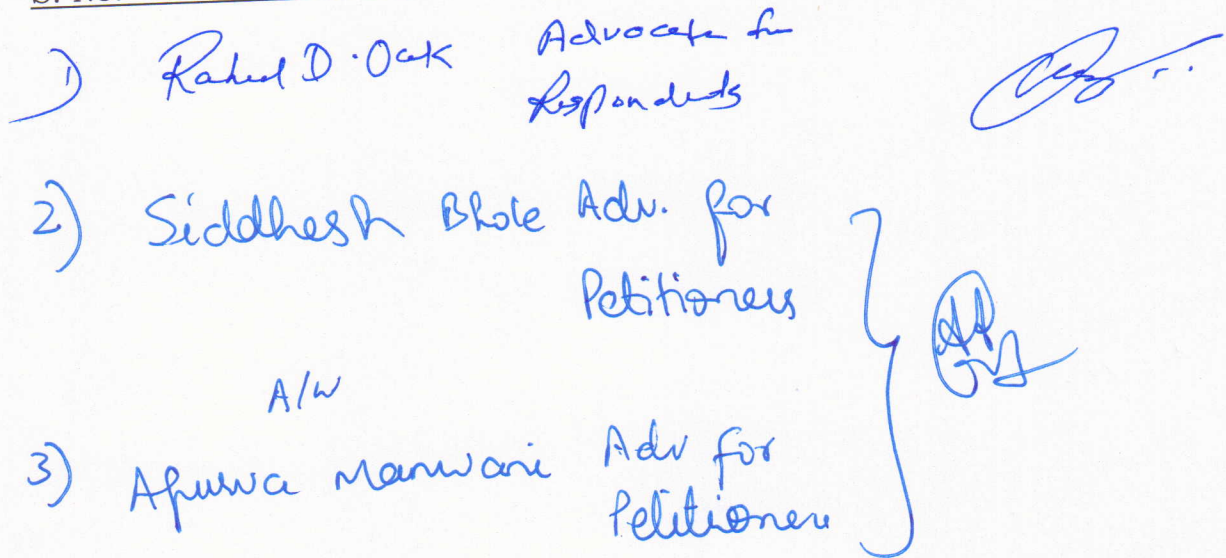 1) Rahul D. Oak Advocate for
Respondents
2) Siddhesh Bhole Adv. for
Petitioners
A/W
3) Apurva Manwani Adv for
Petitioners